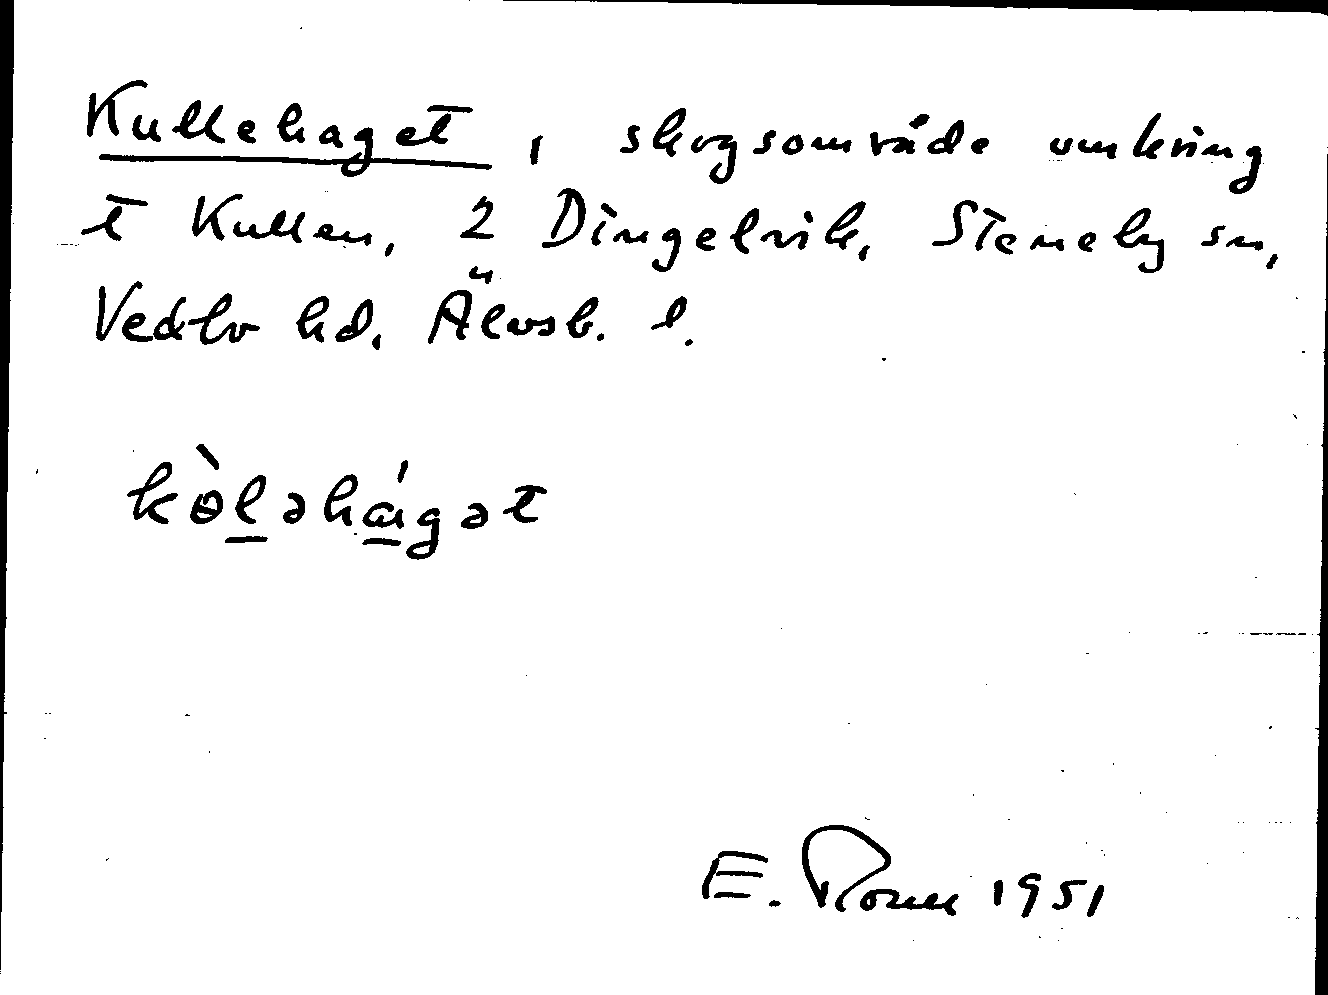 Kullehaget, skogsområde omkring
t Kullen, 2 Dingelvik, Steneby sn,
Vedbo hd. Älvsb. l.
kɵ̀l̲əhá̲gət
E. 1951